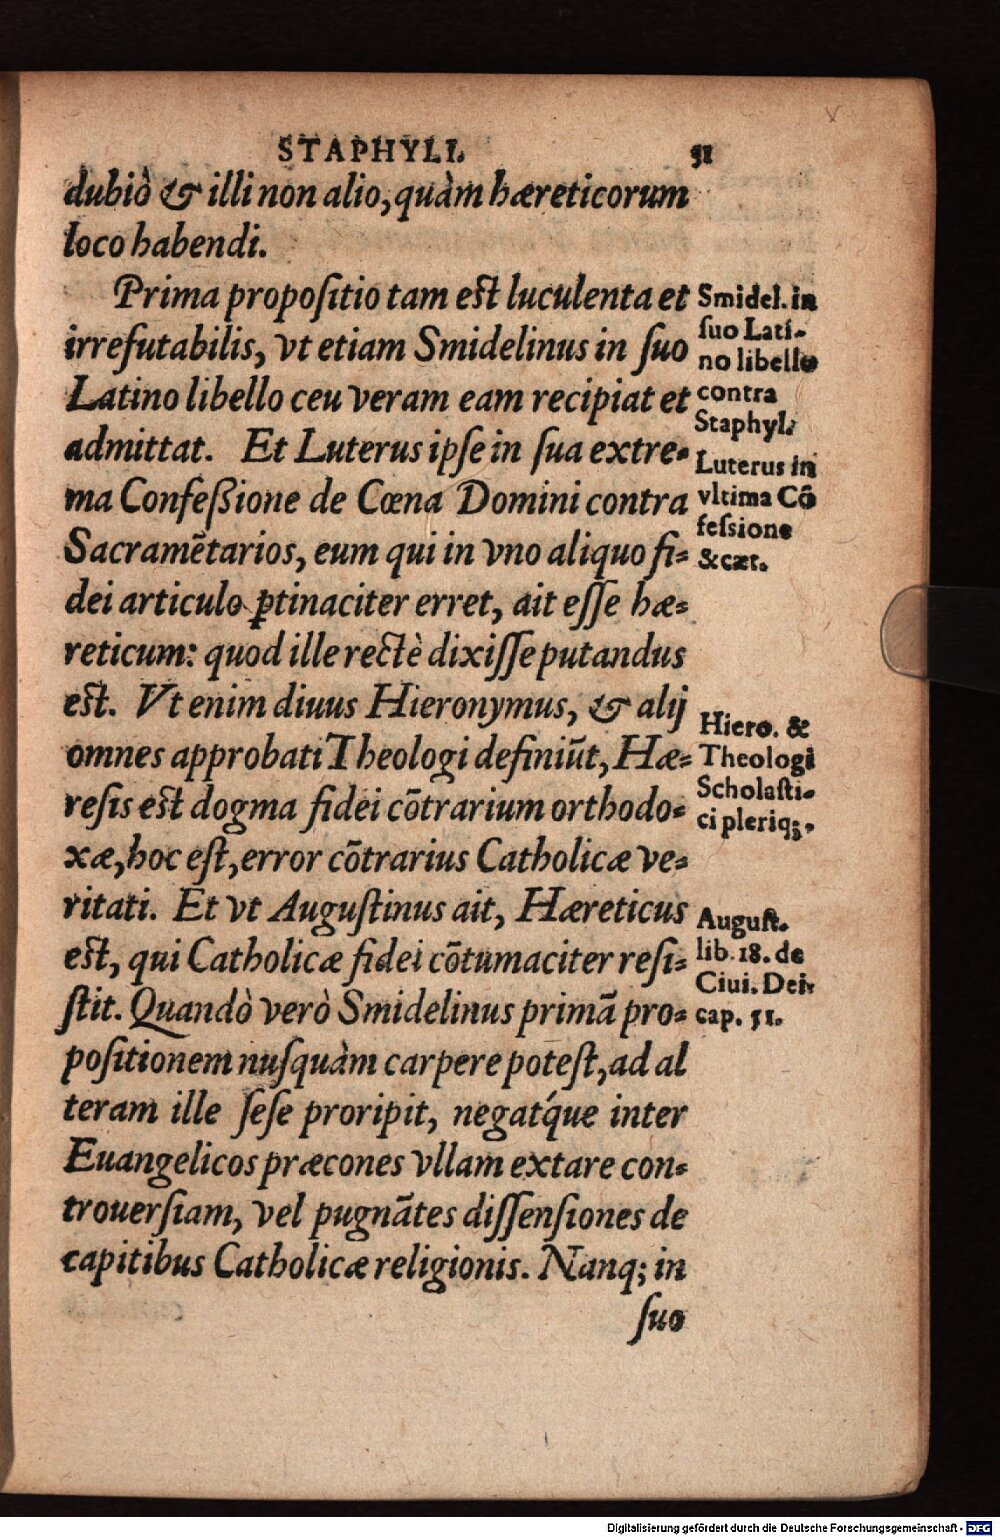 STAPHYLI. 51
dubiò & illi non alio, quàm hæreticorum
loco habendi.
Prima propoſitio tam eſt luculenta et
irrefutabilis, vt etiam Smidelinus in ſuo
Latino libello ceu veram eam recipiat et
admittat. Et Luterus ipſe in ſua extre-
ma Confeßione de Cœna Domini contra
Sacramẽtarios, eum qui in vno aliquo fi-
dei articulo ꝑtinaciter erret, ait eſſe hæ-
reticum: quod ille rectè dixiſſe putandus
eſt. Vt enim diuus Hieronymus, & alij
omnes approbati Theologi definiũt, Hæ-
reſis eſt dogma fidei cõtrarium orthodo-
xæ, hoc eſt, error cõtrarius Catholicæ ve-
ritati. Et vt Auguſtinus ait, Hæreticus
eſt, qui Catholicæ fidei cõtumaciter reſi-
ſtit. Quandò verò Smidelinus primã pro-
poſitionem nuſquàm carpere poteſt, ad al
teram ille ſeſe proripit, negat́que inter
Euangelicos præcones vllam extare con-
trouerſiam, vel pugnãtes diſſenſiones de
capitibus Catholicæ religionis. Nanq; in
ſuo
Smidel. in
ſuo Lati-
no libello
contra
Staphyl.
Luterus in
vltima Cõ
feſsione
&cæt.
Hiero. &
Theologi
Scholaſti-
ci pleriq;.
Auguſt.
lib. 18. de
Ciui. Dei.
cap. 51.
Digitalisierung gefördert durch die Deutsche Forschungsgemeinschaft - DFG